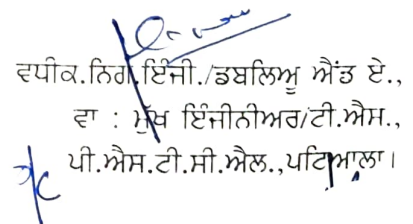 ਵਧੀਕ.ਨਿਗ.ਇੰਜੀ./ਡਬਲਿਅੂ ਐਂਡ ਏ.,
ਵਾ : ਮੁੱਖ ਇੰਜੀਨੀਅਰ/ਟੀ.ਐਸ.,
ਪੀ.ਐਸ.ਟੀ.ਸੀ.ਐਲ.,ਪਟਿਆਲਾ।